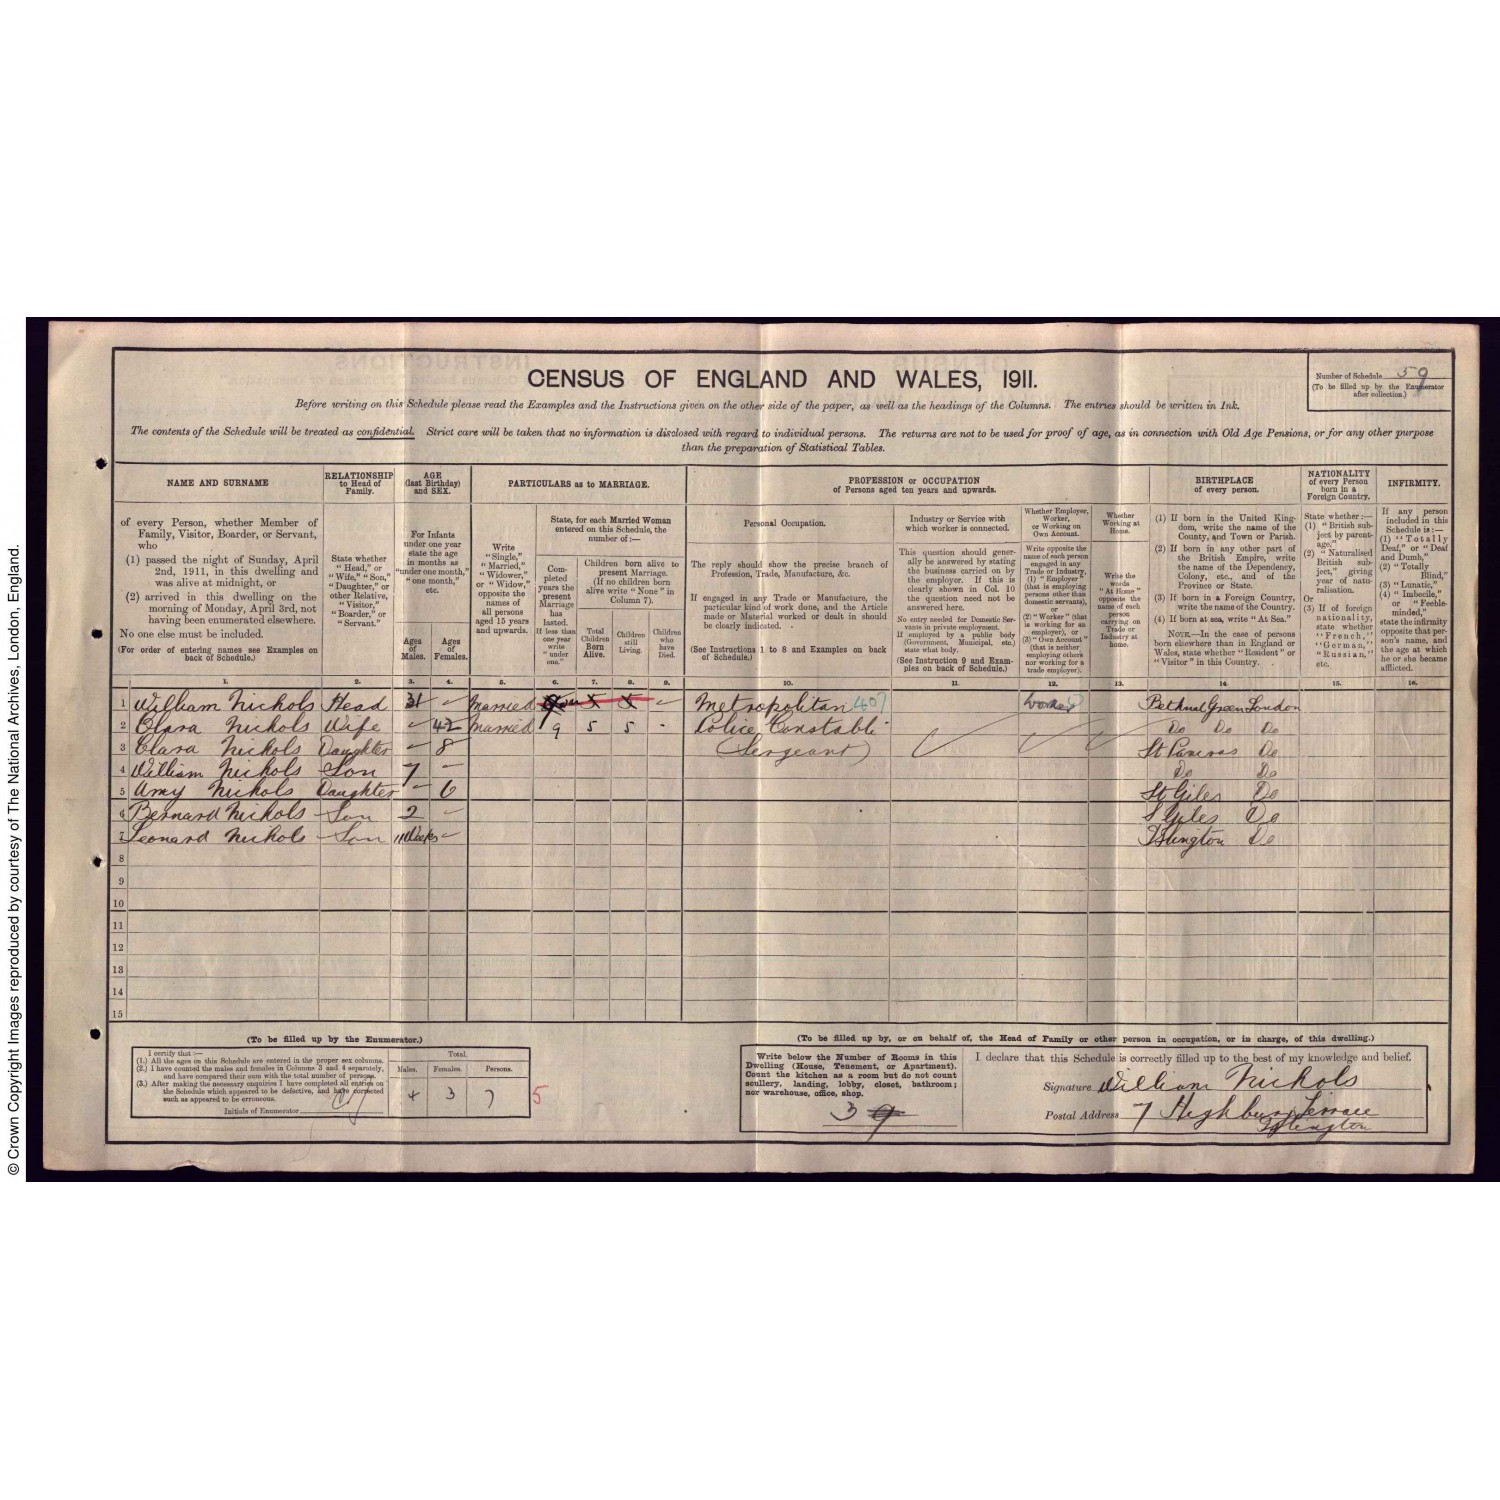 © Crown Copyright Images reproduced by courtesy of The National Archives, London, England.
CENSUS OF ENGLAND AND WALES, 1911.
Number of Schedule 59
(To be filled up by the Enumerator
after collection.)
Before writing on this Schedule please read the Examples and the Instructions given on the other side of the paper, as well as the headings of the Columns. The entries should be written in Ink.
The contents of the Schedule will be treated as confidential. Strict care will be taken that no information is disclosed with regard to individual persons. The returns are not to be used for proof of age, as in connection with Old Age Pensions, or for any other purpose
than the preparation of Statistical Tables.
NAME AND SURNAME
of every Person, whether Member of
Family, Visitor, Boarder, or Servant,
who
(1) passed the night of Sunday, April
2nd, 1911, in this dwelling and
was alive at midnight, or
(2) arrived in this dwelling on the
morning of Monday, April 3rd, not
having been enumerated elsewhere.
No one else must be included.
(For order of entering names see Examples on
back of Schedule.)
RELATIONSHIP
to Head of
Family.
State whether
"Head," or
"Wife," "Son,"
"Daughter," or
other Relative,
"Visitor,"
"Boarder," or
"Servant."
AGE
(last Birthday)
and SEX.
For Infants
under one year
state the age
in months as
"under one month,"
"one month,"
etc.
Ages
of
Males.
Ages
of
Females.
PARTICULARS as to MARRIAGE.
Write
"Single,"
"Married,"
"Widower,"
or "Widow,"
opposite the
names of
all persons
aged 15 years
and upwards.
State, for each Married Woman
entered on this Schedule, the
number of:—
Com-
pleted
years the
present
Marriage
has
lasted.
If less than
one year
write
"under
one."
Children born alive to
present Marriage.
(If no children born
alive write "None" in
Column 7).
Total
Children
Born
Alive.
Children
still
Living.
Children
who
have
Died.
PROFESSION or OCCUPATION
of Persons aged ten years and upwards.
Personal Occupation.
The reply should show the precise branch of
Profession, Trade, Manufacture, &c.
If engaged in any Trade or Manufacture, the
particular kind of work done, and the Article
made or Material worked or dealt in should
be clearly indicated.
(See Instructions 1 to 8 and Examples on back
of Schedule.)
Industry or Service with
which worker is connected.
This question should gener-
ally be answered by stating
the business carried on by
the employer. If this is
clearly shown in Col. 10
the question need not be
answered here.
No entry needed for Domestic Ser-
vants in private employment.
If employed by a public body
(Government, Municipal, etc.)
state what body.
(See Instruction 9 and Exam-
ples on back of Schedule.)
Whether Employer,
Worker,
or Working on
Own Account.
Write opposite the
name of each person
engaged in any
Trade or Industry,
(1) "Employer"
(that is employing
persons other than
domestic servants),
or
(2) "Worker" (that
is working for an
employer), or
(3) "Own Account"
(that is neither
employing others
nor working for a
trade employer).
Whether
Working at
Home.
Write the
words
"At Home"
opposite the
name of each
person
carrying on
Trade or
Industry at
home.
BIRTHPLACE
of every person.
(1) If born in the United King-
dom, write the name of the
County, and Town or Parish.
(2) If born in any other part of
the British Empire, write
the name of the Dependency,
Colony, etc., and of the
Province or State.
(3) If born in a Foreign Country,
write the name of the Country.
(4) If born at sea, write "At Sea."
NOTE.—In the case of persons
born elsewhere than in England or
Wales, state whether "Resident" or
"Visitor" in this Country.
NATIONALITY
of every Person
born in a
Foreign Country.
State whether:—
(1) "British sub-
ject by parent-
age,"
(2) "Naturalised
British sub-
ject," giving
year of natu-
ralisation.
Or
(3) If of foreign
nationality,
state whether
"French,"
"German,"
"Russian,"
etc.
INFIRMITY.
If any person
included in this
Schedule is:—
(1) "Totally
Deaf," or "Deaf
and Dumb,"
(2) "Totally
Blind,"
(3) "Lunatic,"
(4) "Imbecile,"
or "Feeble-
minded,"
state the infirmity
opposite that per-
son's name, and
the age at which
he or she became
afflicted.
1. 2. 3. 4. 5. 6. 7. 8. 9. 10. 11. 12. 13. 14. 15. 16.
1 William Nichols Head 31 – Married – Metropolitan 407 Worker Bethnal Green London
2 Clara Nichols Wife – 42 Married 9 5 5 - Police Constable Do Do Do
3 Clara Nichols Daughter – 8 (Sergeant) St Pancras Do
4 William Nichols Son 7 – Do Do
5 Amy Nichols Daughter – 6 St Giles Do
6 Bernard Nichols Son 2 – St Giles Do
7 Leonard Nichols Son 11 Weeks – Islington Do
8
9
10
11
12
13
14
15
(To be filled up by the Enumerator.)
I certify that:—
(1.) All the ages on this Schedule are entered in the proper sex columns.
(2.) I have counted the males and females in Columns 3 and 4 separately,
and have compared their sum with the total number of persons.
(3.) After making the necessary enquiries I have completed all entries on
the Schedule which appeared to be defective, and have corrected
such as appeared to be erroneous.
Initials of Enumerator
Total.
Males. Females. Persons.
4 3 7 5
(To be filled up by, or on behalf of, the Head of Family or other person in occupation, or in charge, of this dwelling.)
Write below the Number of Rooms in this
Dwelling (House, Tenement, or Apartment).
Count the kitchen as a room but do not count
scullery, landing, lobby, closet, bathroom;
nor warehouse, office, shop.
3 9
I declare that this Schedule is correctly filled up to the best of my knowledge and belief.
Signature William Nichols
Postal Address 7 Highbury Terrace
Islington